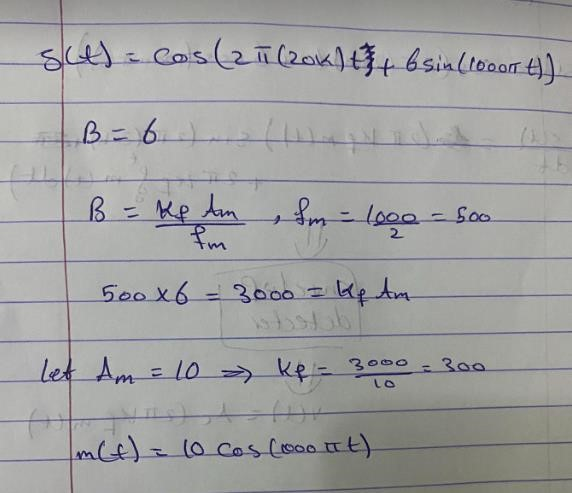 s(t) = cos(2π(20K)t + 6sin(1000πt))
B = 6
B = Kf Am / fm , fm = 1000/2 = 500
500 x 6 = 3000 = Kf Am
let Am = 10 ⇒ Kf = 3000/10 = 300
m(t) = 10 cos(1000πt)